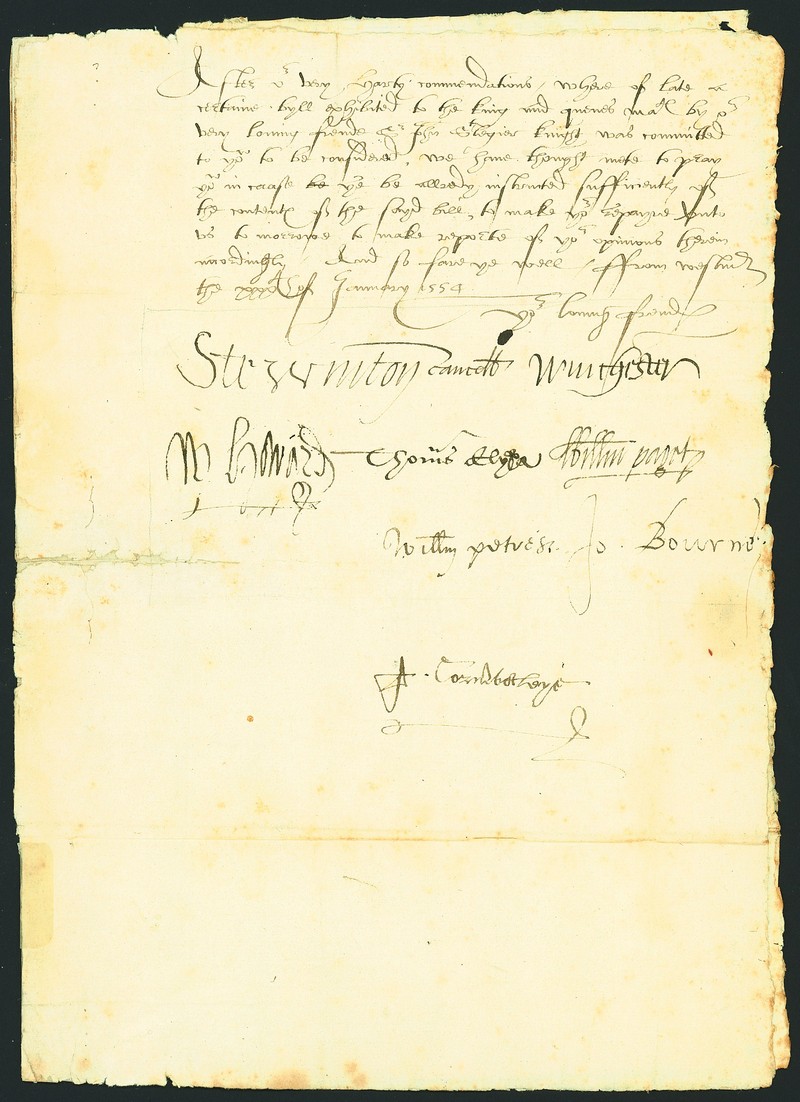 After or very harty commendations / where of late a
certaine byll exhibited to the king and quenes matie by or
very loving frende Sr John knight was committed
to you to be considered, we have thought mete to pray
you in caase be ye be allredy instructed sufficiently of
the content of the sayd bill, to make yor repayre unto
us to morrowe to make reporte of yor opinions therein
accordingly / And so fare ye well / ffrom westmr
the of January 1554
yor loving frends
Ste winton cancell Winchester
W Howard Thomas Elye Willm paget
Willm petre Jo. Bourne